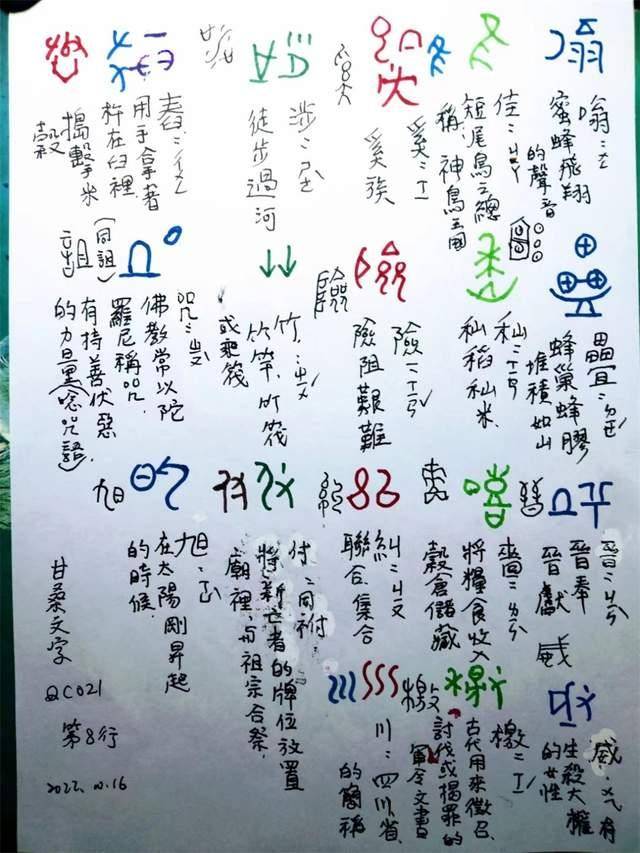 嗡:ㄨㄥ
蜜蜂飛翔
的聲音
短尾鳥之總
稱,神鳥王國
奚:ㄒㄧ
奚族
涉:ㄕㄜˋ
徒步過河
舂:ㄔㄨㄥ
用手拿著
杵在臼裡
搗擊米
穀
蜂巢蜂膠
堆積如山
秈:ㄒㄧㄢ
秈稻秈米
險:ㄒㄧㄢˇ
險阻艱難
竹:ㄓㄨˊ
竹竿,竹筏
或乘筏
咒:ㄓㄡˋ
佛教常以陀
羅尼稱咒,
有持善伏惡
的力量(唸咒語)
(同詛)
詛
晉:ㄐㄧㄣˋ
晉奉
晉獻
將糧食收入
穀倉儲藏
糾:ㄐㄧㄡ
聯合,集合
付:同祔
將新亡者的牌位放置
廟裡,與祖宗合祭,
旭:ㄒㄩˋ
在太陽剛昇起
的時候
旭
威:ㄨㄟ
有生殺大權
的女性
檄:ㄒㄧˊ
古代用來徵召,
討伐或揭罪的
軍令文書
檄
川:四川省
的簡稱
甘桑文字
QC021
第8行
2022.10.16